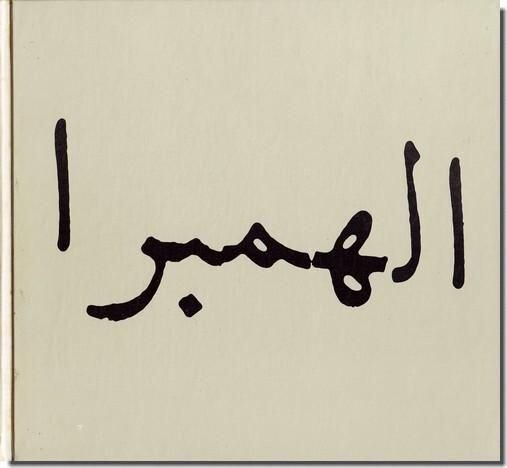 الهمبرا